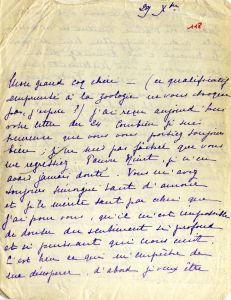 29 Xbre
118
Mon grand coq chéri — (ce qualificatif
emprunté à la zoologie ne vous choque
pas, j'espère ?) j'ai reçu aujourd'hui
votre lettre du 24 Combien je suis
heureuse que vous vous portiez toujours
bien ; je ne suis pas fâchée que vous
me regrettiez Pauvre Minet, je n'en
avais jamais douté. Vous m'avez
toujours témoigné tant d'amour
et je le sens tant par celui que
j'ai pour vous, qu'il m'est impossible
de douter du sentiment si profond
et si puissant qui nous unit.
C'est bien ce qui m'empêche de
me désespérer. d'abord je veux être